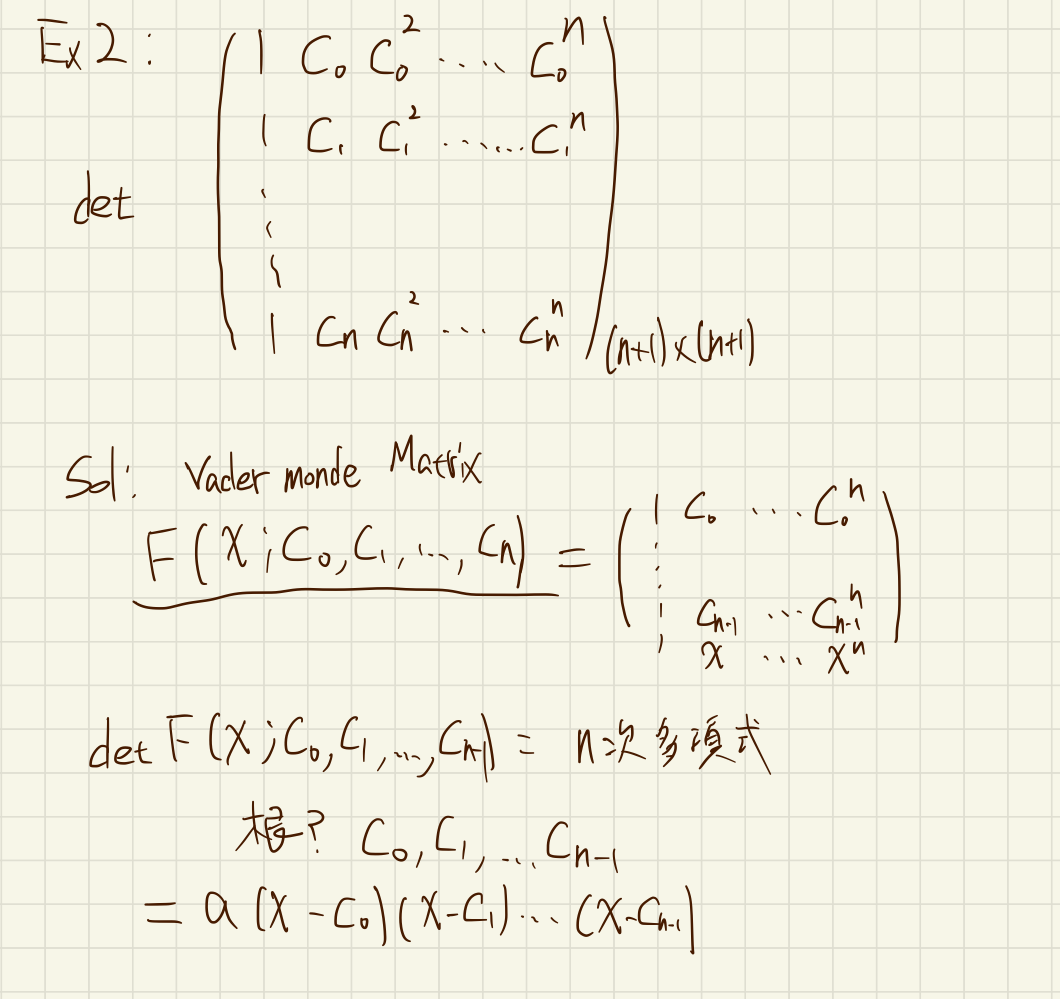 Ex 2 :
det
( 1 C₀ C₀² ..... C₀ⁿ
1 C₁ C₁² ...... C₁ⁿ
⋮
1 Cn Cn² ... Cnⁿ ) (n+1)×(n+1)
Sol: Vader monde Matrix
F(x; C₀, C₁, ..., Cn) = ( 1 C₀ ... C₀ⁿ
⋮
1 Cn-1 ... Cn-1ⁿ
1 x ... xⁿ )
det F(x; C₀, C₁, ..., Cn-1) = n次多項式
根? C₀, C₁, ... Cn-1
= a (x - C₀)(x - C₁) ... (x - Cn-1)